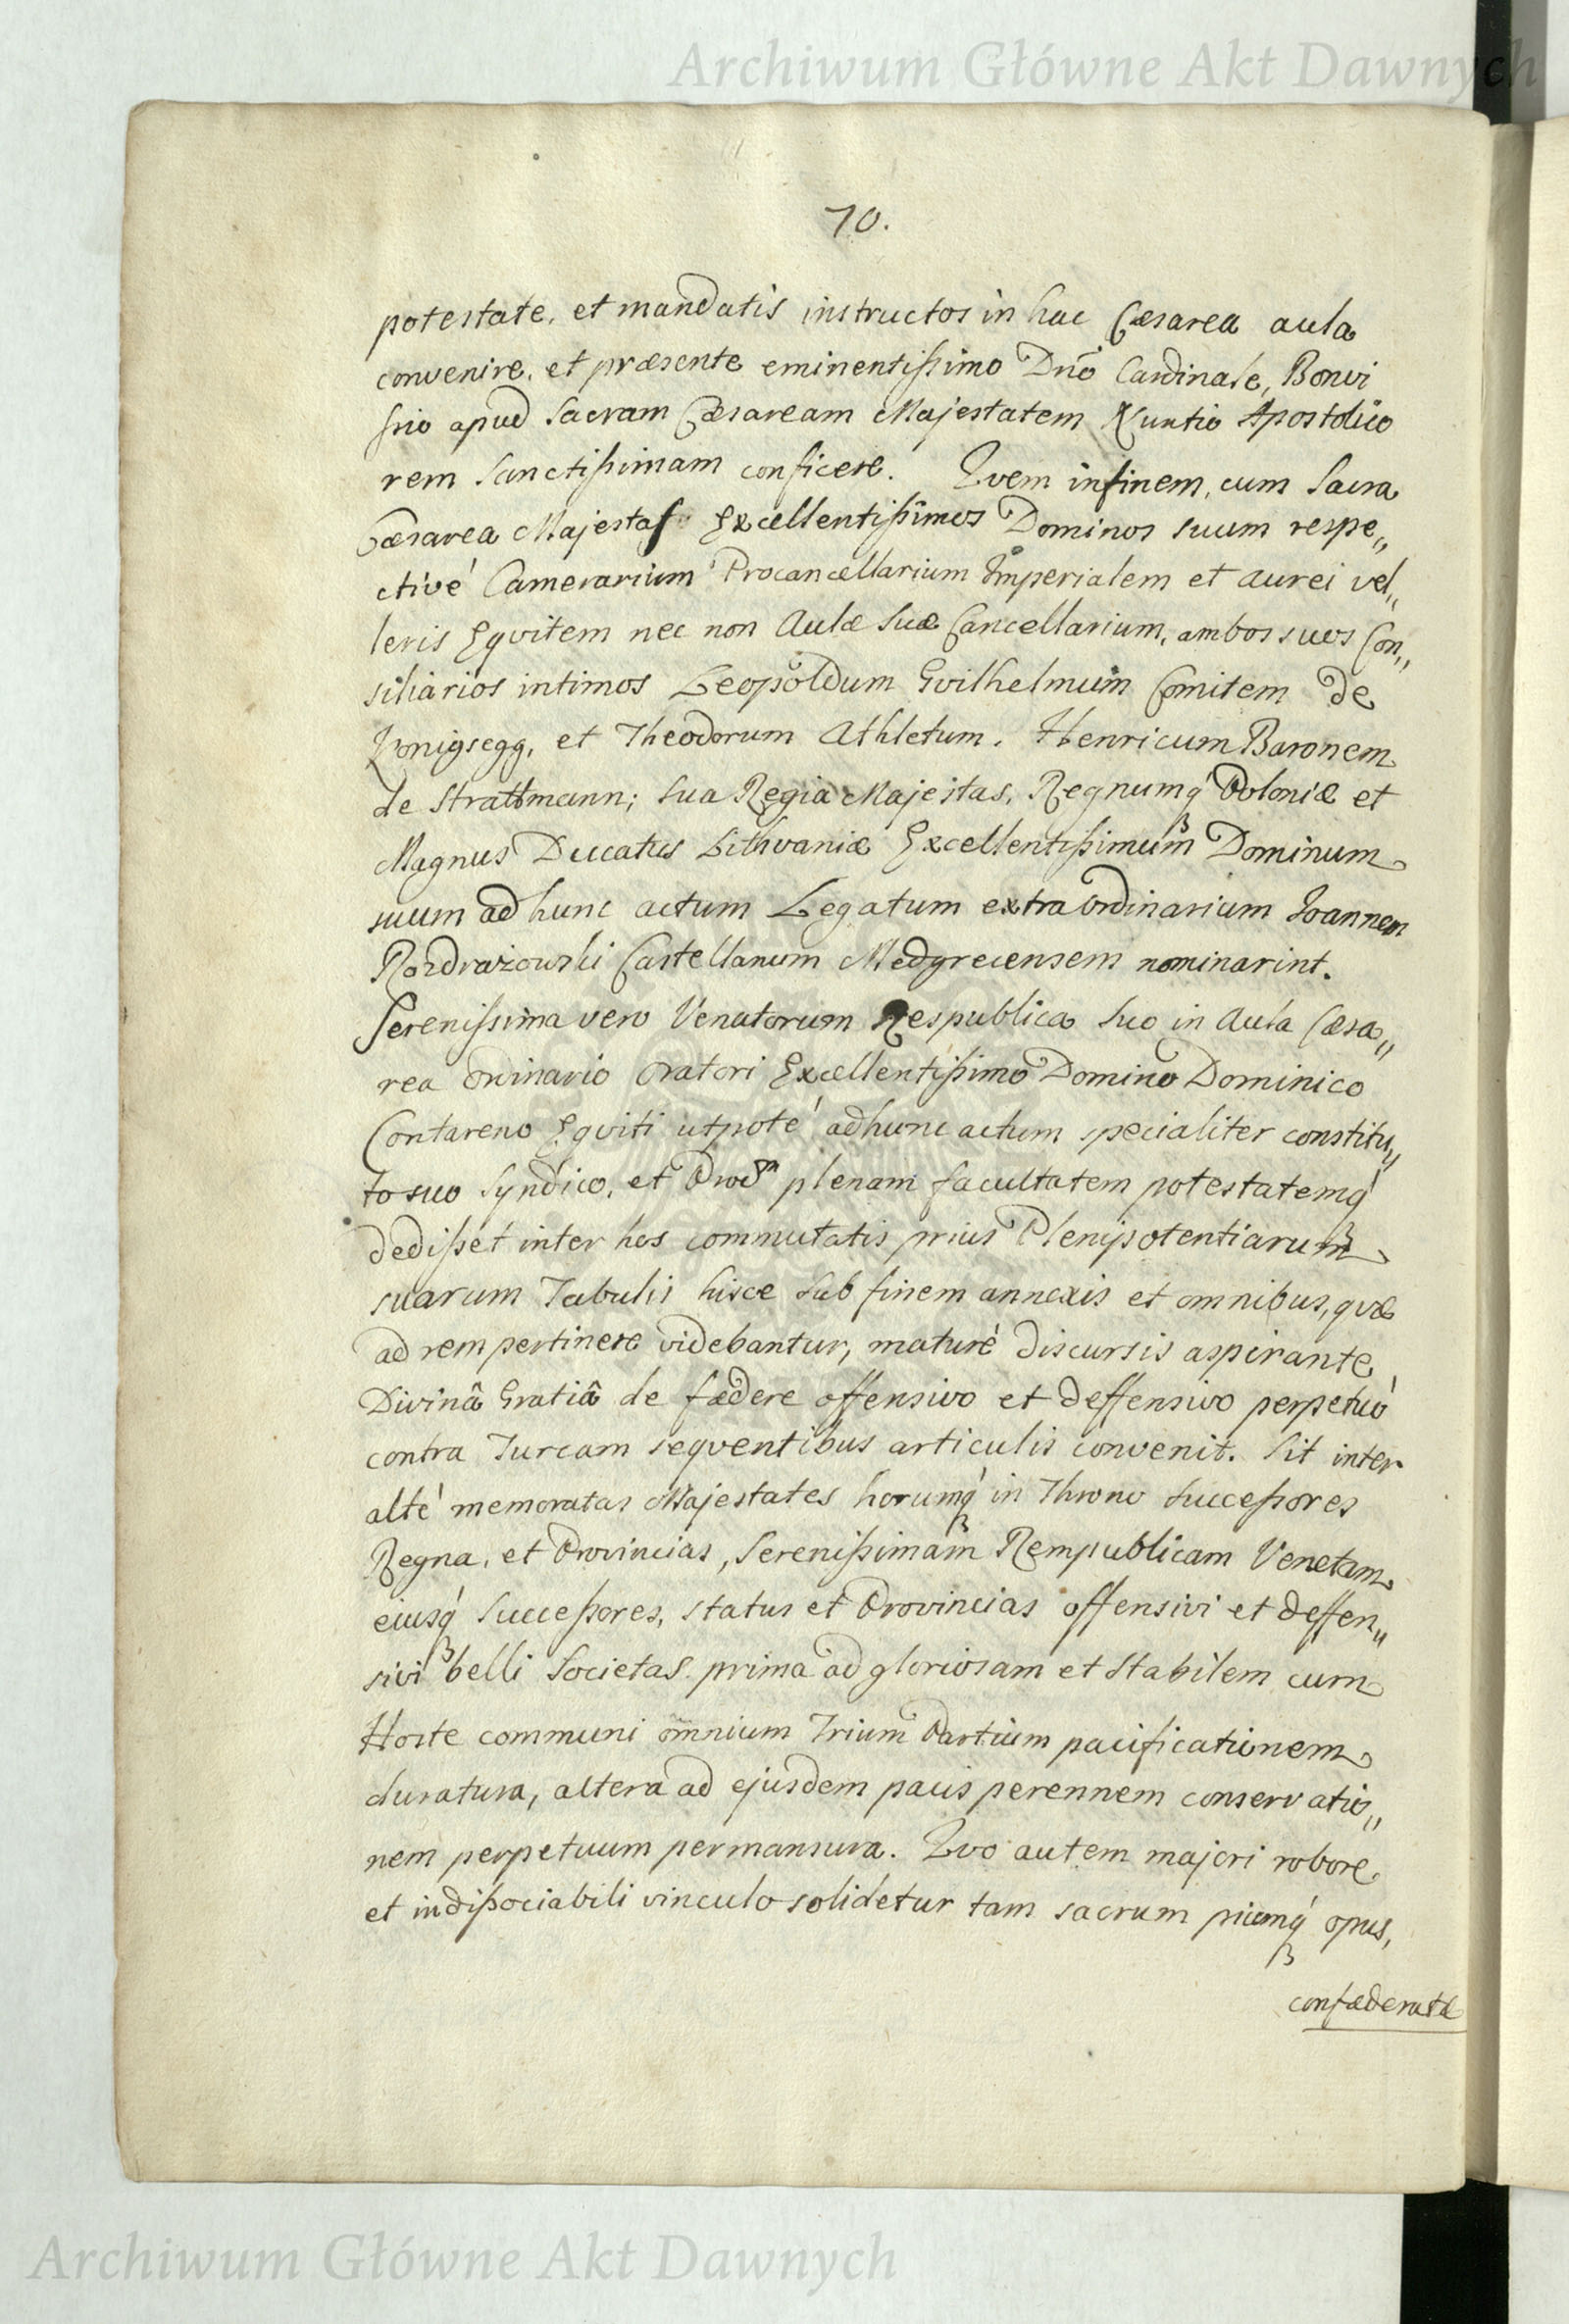 Archiwum Główne Akt Dawnych
70.
potestate, et mandatis instructos in hac Cæsarea aula
convenire, et præsente eminentißimo Dnõ Cardinale, Bonvi
sio apud Sacram Cæsaream Majestatem Nuntio Apostolico
rem Sanctißimam conficere. Qvem in finem, cum Sacra
Cæsarea Majestas Excellentißimos Dominos suum respe„
ctivé Camerarium Procancellarium Imperialem et aurei vel„
leris Eqvitem nec non Aulæ Suæ Cancellarium, ambos suos Con„
siliarios intimos Leopoldum Gvilhelmum Comitem de
Konigsegg, et Theodorum Athletum. Henricum Baronem
de Strattmann; Sua Regia Majestas, Regnumq́ Poloniæ et
Magnus Ducatus Lithvaniæ Excellentißimum Dominum
suum ad hunc actum Legatum extraordinarium Joannem
Rozdrażowski Castellanum Medyrecensem nominarint.
Serenissima vero Venatorum Respublica suo in Aula Cæsa„
rea ordinario Oratori Excellentißimo Domino Dominico
Contareno Eqviti utpoté ad hunc actum specialiter constitu„
to suo Syndico, et Procrⁿ plenam facultatem potestatemq́
dedißet inter hos commutatis prius Plenipotentiarum
suarum Tabulis hisce sub finem annexis et omnibus, qvæ
ad rem pertinere videbantur, maturé discursis aspirante
Divinâ Gratiâ de fædere offensivo et deffensivo perpetuó
contra Turcam seqventibus articulis convenit. Sit inter
alté memoratas Majestates horumq́ in Throno Succeßores
Regna, et Provincias, Serenißimam Rempublicam Venetam
eiusq́ Succeßores, status et Provincias offensivi et deffen„
sivi belli Societas prima ad gloriosam et stabilem cum
Hoste communi omnium Trium Partium pacificationem
duratura, altera ad ejusdem pacis perennem conservatio„
nem perpetuum permansura. Qvo autem majori robore
et indißociabili vinculo solidetur tam sacrum piumq́ opus,
confæderatæ
Archiwum Główne Akt Dawnych